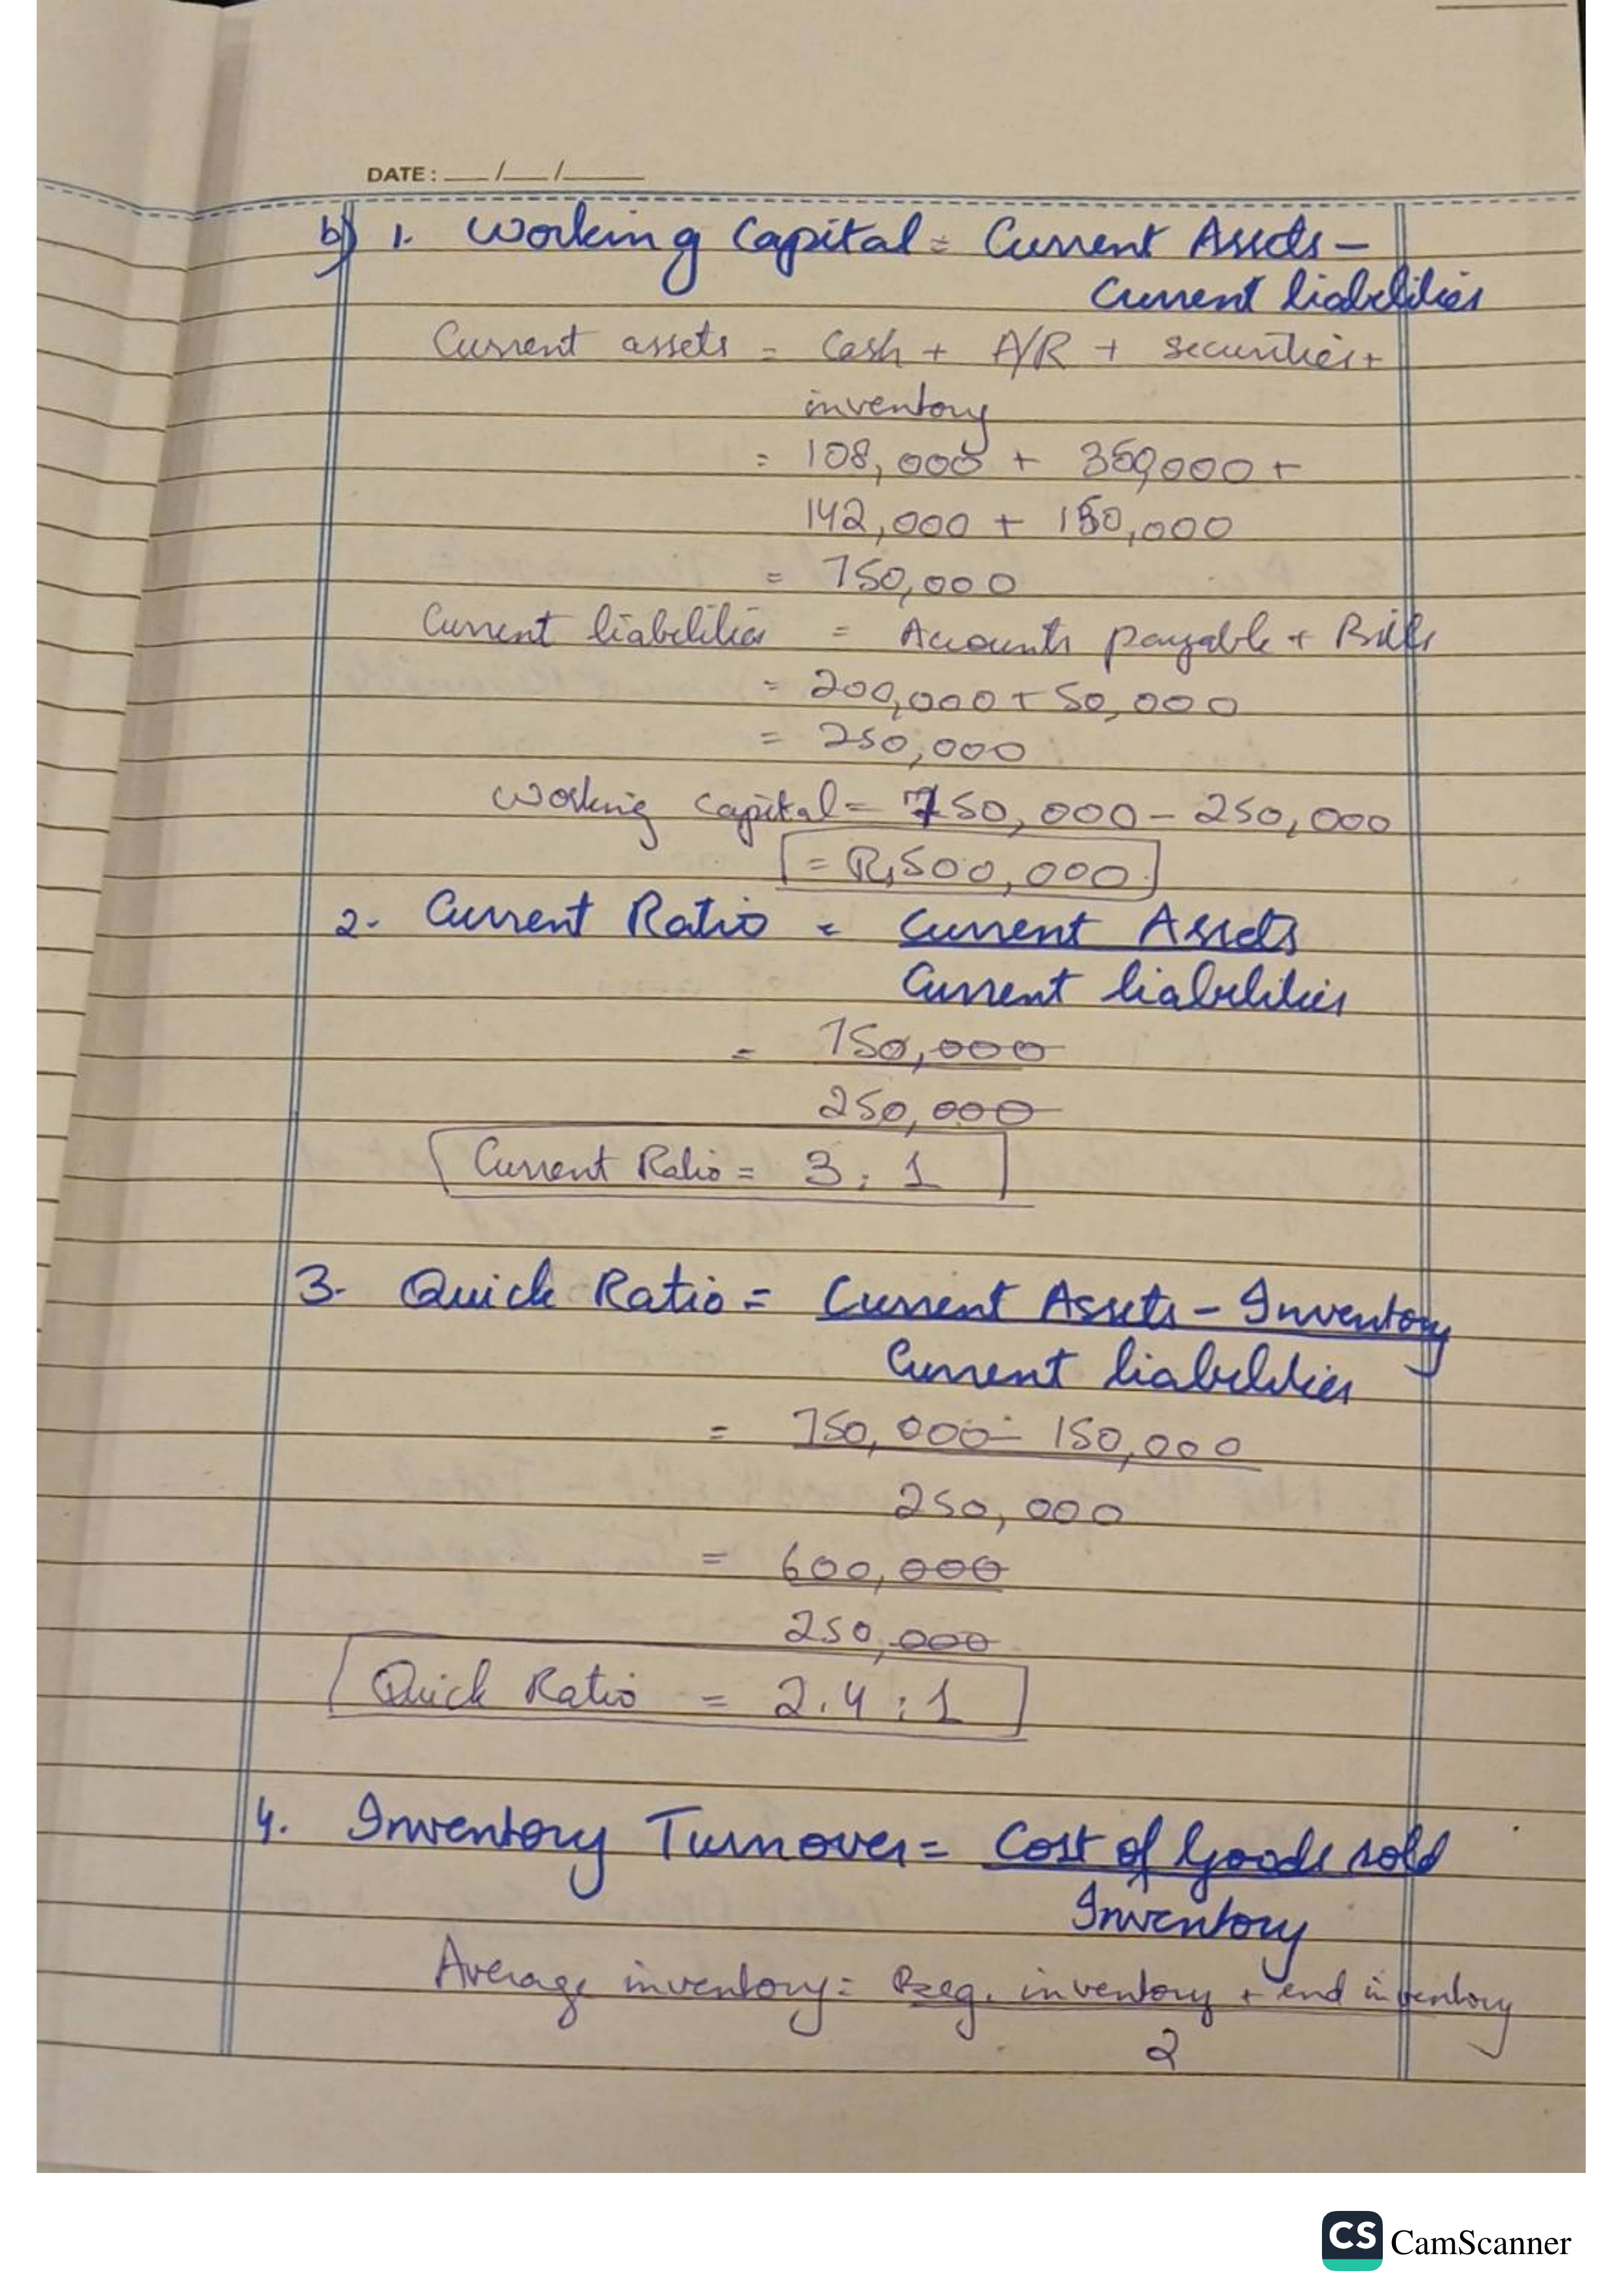 DATE: __/__/__
b) 1. Working Capital = Current Assets -
Current liabilities
Current assets = Cash + A/R + securities +
inventory
= 108,000 + 350,000 +
142,000 + 150,000
= 750,000
Current liabilities = Accounts payable + Bills
= 200,000 + 50,000
= 250,000
Working capital = 750,000 - 250,000
= Rs 500,000
2. Current Ratio = Current Assets
Current liabilities
= 750,000
250,000
Current Ratio = 3:1
3. Quick Ratio = Current Assets - Inventory
Current liabilities
= 750,000 - 150,000
250,000
= 600,000
250,000
Quick Ratio = 2.4:1
4. Inventory Turnover = Cost of Goods sold
Inventory
Average inventory = Beg. inventory + end inventory
2
CS CamScanner